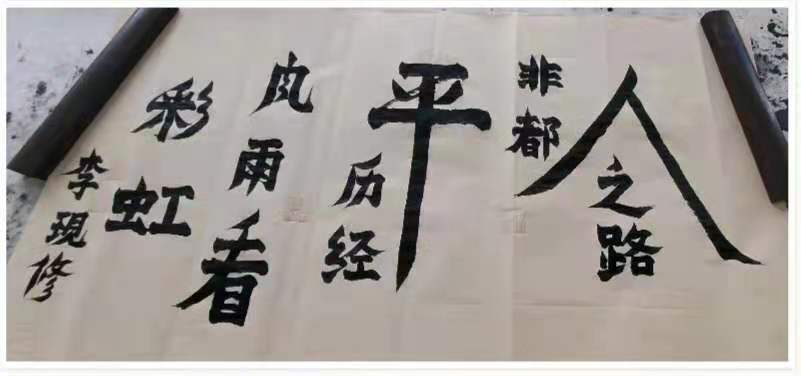 人之路
非都
平
历经
风雨看
彩虹
李現修